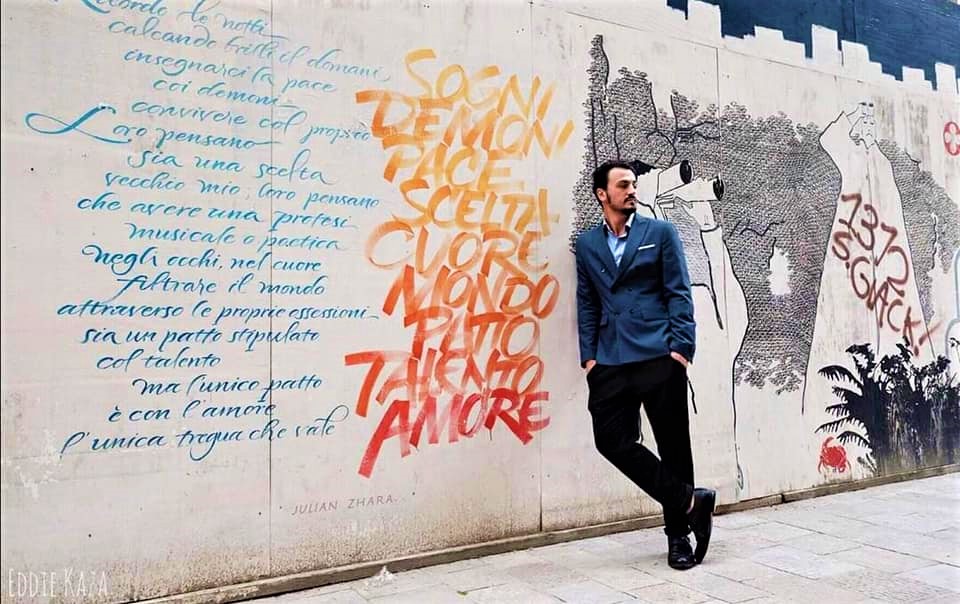 Ricordo le notti
calcando brilli il domani
insegnarci la pace
coi demoni
convivere col proprio
Loro pensano
sia una scelta
vecchio mio; loro pensano
che avere una protesi
musicale o poetica
negli occhi, nel cuore
filtrare il mondo
attraverso le proprie ossessioni
sia un patto stipulato
col talento
ma l'unico patto
è con l'amore
l'unica tregua che vale
SOGNI
DEMONI
PACE
SCELTA
CUORE
MONDO
PATTO
TALENTO
AMORE
JULIAN ZHARA
Eddie Kaza